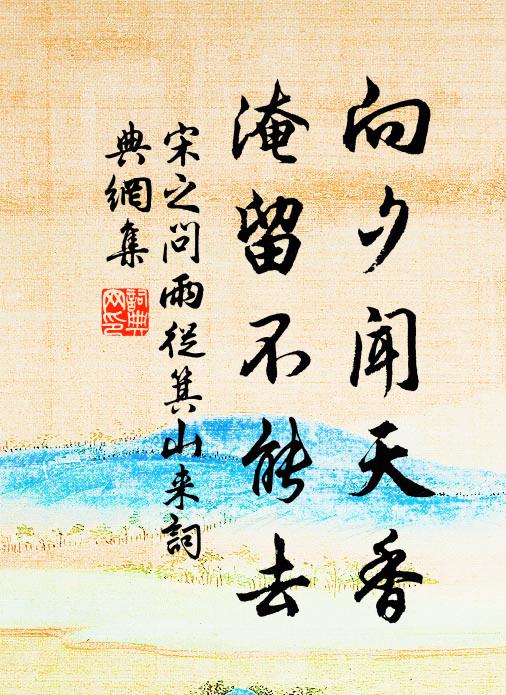 向夕闻天香
淹留不能去
宋之问雨從箕山来詞
典網集
詞典网印